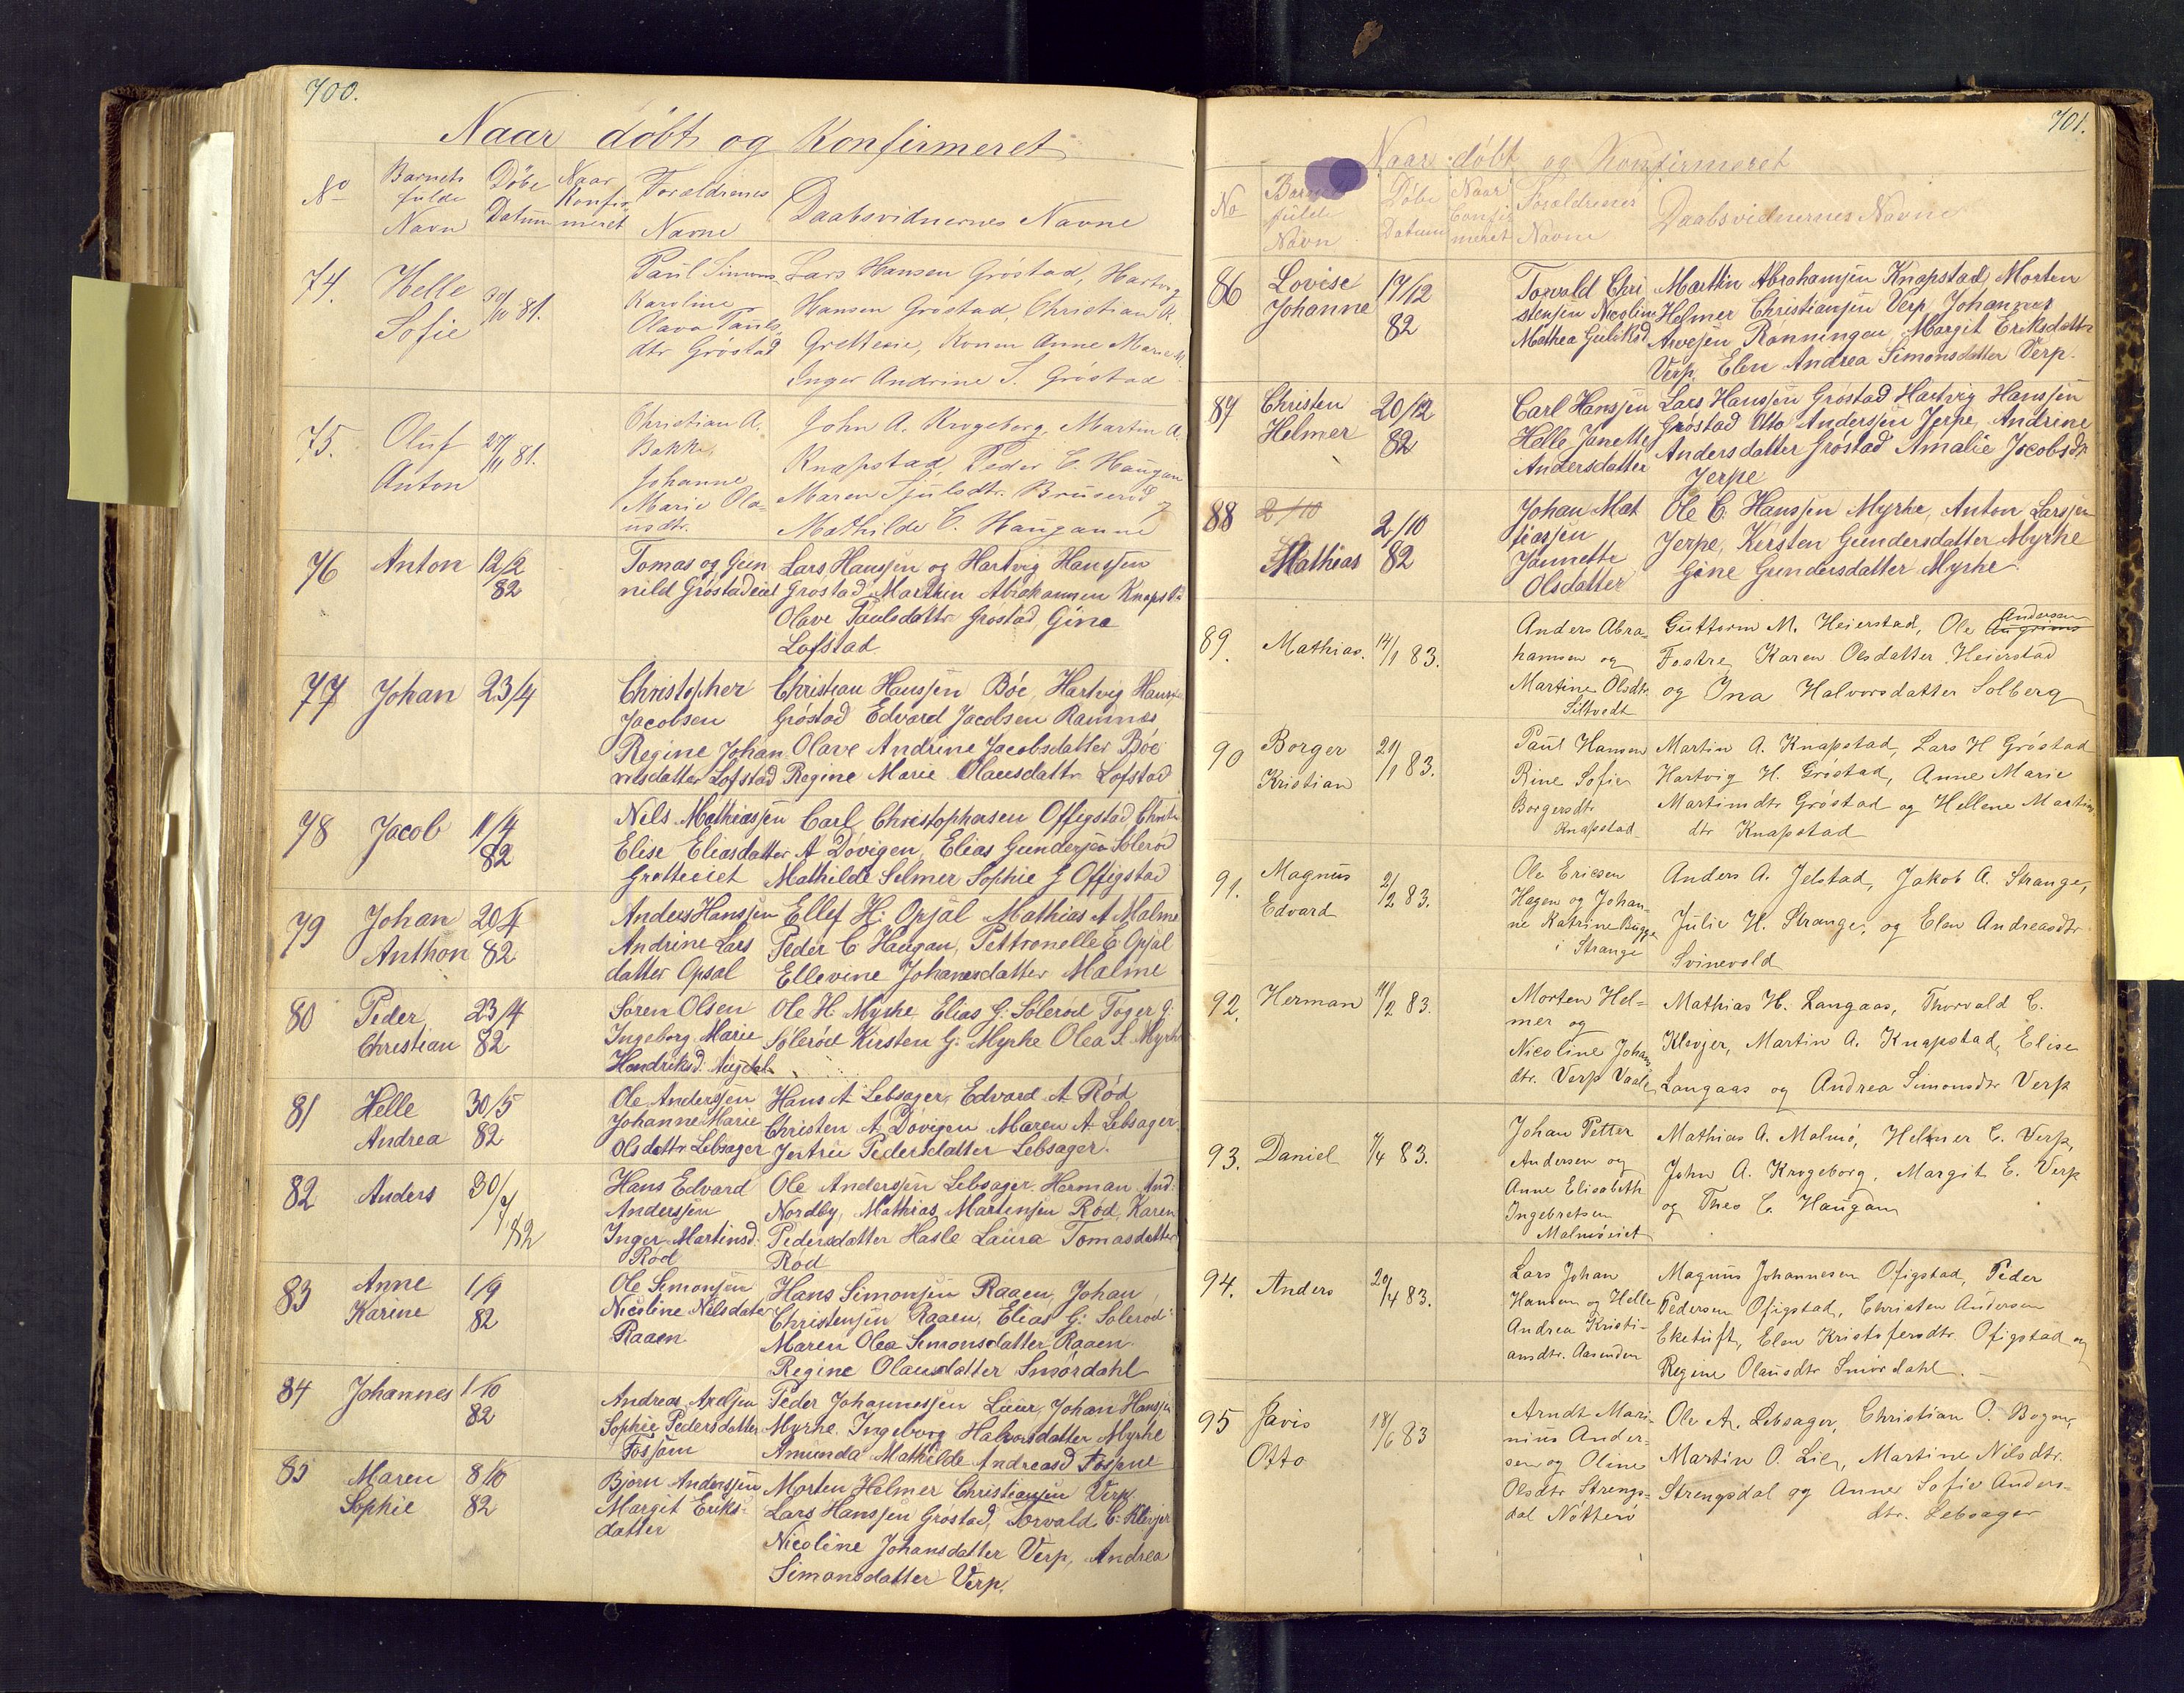 700.
Naar döbt og Konfirmeret
No
Barnets fulde Navn
Döbe Datum
Naar Konfirmeret
Forældrenes Navne
Daabsvidnernes Navne
74. Helle Sofie 30/10 81.
Paul Simons
Karoline
Olava Pauls
dtr Gröstad
Lars Hansen Gröstad, Hartvig
Hansen Gröstad, Christian K.
Grettene, Konen Anne Marie M.
Inger Andrine S. Gröstad
75. Oluf Anton 27/11 81.
Christian A.
Bakke,
Johanne
Marie Ola-
usdtr.
John A. Krogeborg, Martin A.
Knapstad, Peder C. Haugan
Maren Hjulsdtr. Bruseröd
Mathilde C. Hauganne
76 Anton 12/2 82
Tomas og Gun
nild Gröstadeiet
Lars Hansjen og Hartvig Hansjen
Grostad Marthin Abrahamsen Knapst
Olave Paulsdattr Gröstad, Gina
Lofstad
77 Johan 23/4
Christopher
Jacobsen
Regine Johan
nesdatter Lofstad
Christian Hansjen Böe, Hartvig Hansje
Gröstad Edvard Jacobsen Ramnæs
Olave Andrine Jacobsdatter Böe
Regine Marie Olausdattr Lofstad
78 Jacob 11/4 82
Nils Mathiasjen
Elise Eliasdatter
Gretteeiet
Carl Christophersen Offigstad, Christen
A Dövigen, Elias Gundersjen Solerød
Mathilde Selmer Sophie G Offigstad
79 Johan Anthon 20/4 82
Anders Hansjen
Andrine Lars
datter Opsal
Ellef H: Opsal Mathias A Malme
Peder C Haugan, Pettronelle E Opsal
Ellevine Johanesdatter Malme
80 Peder Christian 23/4 82
Soren Olsen
Ingeborg Marie
Hendriksd.
Ole H. Myhre Elias G: Solerod Toger G:
Sölerød Kirsten G: Myhre Olea S. Myhre
81 Helle Andrea 30/5 82
Ole Andersjen
Johanne Marie
Olsdattr Lebsager
Hans A Lebsager, Edvard A Röd
Christen A Dövigen Maren A Lebsager
Jertrue Pedersdatter Lebsager.
82 Anders 30/7/82
Hans Edvard
Andersjen
Inger Martinsd.
Rød
Ole Andersjen Lebsager. Herman And:
Nordby, Mathias Martinjen Rød, Karen
Pedersdatter Hasle Laura Tomasdatter
Rød
83 Anne Karine 1/9 82
Ole Simonjen
Nicoline Nilsdater
Raaen
Hans Simonjen Raaen, Johan
Christensjen Raaen, Elias G: Solerod
Maren Olea Simonsdatter Raaen
Regine Olausdatter Smørdahl
84 Johannes 1/10 82
Andreas Axeljen
Sophie Pedersdatter
Fosjom
Peder Johannesjen Luur, Johan Hansje
Myrhe. Ingeborg Halvorsdatter Myrhe
Amunda Mathilde Andreasd Fosjme
85 Maren Sophie 8/10 82
Bjørn Andersjen
Margit Eriks-
datter
Morten Helmer Christiansjen Verp
Lars Hansjen Grostad, Torvald C. Klevjer
Nicoline Johansdatter Verp, Andrea
Simonsdatter Verp.
701.
Naar döbt og Konfirmeret
No
Barnets fulde Navn
Döbe Datum
Naar Confirmeret
Forældrenes Navne
Daabsvidnernes Navne
86 Lovise Johanne 17/12 82
Torvald Chri
stenjen Nicoline
Mathea Guliksd
Marthin Abrahamsjen Knapstad, Morten
Helmer Christiansjen Verp, Johannes
Avesjen Rønningen, Margit Eriksdattr
Verp, Elen Andrea Simonsdatter Verp.
87 Christen Helmer 20/12 82
Carl Hansjen
Helle Janette
Andersdatter
Lars Hansjen Grøstad Hartvig Hansjen
Grøstad Otto Andersjen Jerpe, Andrine
Andersdatter Grøstad Amalie Jacobsdr
Jerpe
88 2/10
Mathias 2/10 82
Johan Mat
tiasjen
Jannette
Olsdatter
Ole C. Hansjen Myrhe, Anton Larsjen
Jerpe, Kersten Gundersdatter Myrhe
Gine Gundersdatter Myrhe
89. Mathias. 14/1 83.
Anders Abra-
hamsen og
Martine Olsdtr.
Siltvedt
Guttorm M. Heierstad, Ole Andersen
Fostre, Karen Olsdatter Heierstad
og Ina Halvorsdatter Solberg
90 Borger Kristian 21/1 83.
Paul Hansen
Rine Sofie
Borgersdtr.
Knapstad
Martin A. Knapstad, Lars H Gröstad
Hartvig H. Gröstad, Anne Marie
Martinsdtr Gröstad og Hellene Martins
dtr Knapstad
91. Magnus Edvard 2/2 83.
Ole Ericsen
Hagen og Johan-
ne Katrine Bugge
i Strange
Anders A. Jelstad, Jakob A. Strange,
Julie H. Strange, og Elen Andreasdtr
Svinevold
92. Herman 11/2 83.
Morten Hel-
mer og
Nicoline Johans
dtr. Verp Vaale
Mathias H. Langaas, Thorvald C.
Klevjer, Martin A. Knapstad, Elise
Langaas og Andrea Simonsdtr Verp
93. Daniel 1/4 83.
Johan Petter
Andersen og
Anne Elisabeth
Ingebretsen
Malmöeiet
Mathias A. Malmö, Helmer C. Verp,
John A. Krogeborg, Margit E. Verp
og Theo C. Haugan
94. Anders 29/4 83.
Lars Johan
Hansen og Helle
Andrea Kristi-
ansdtr. Aasenden
Magnus Johannesen Ofigstad, Peder
Pedersen Ofigstad, Christen Andersen
Eketuft, Elen Kristofersdtr. Ofigstad og
Regine Olausdtr Smördahl.
95 Javis Otto 18/6 83
Arndt Mari-
nius Ander-
sen og Oline
Olsdtr Strengs-
dal Nötterö
Ole A. Lebsager, Christian O. Bogen,
Martin O. Lie, Martine Nilsdtr.
Strengsdal og Anne Sofie Anders-
dtr. Lebsager